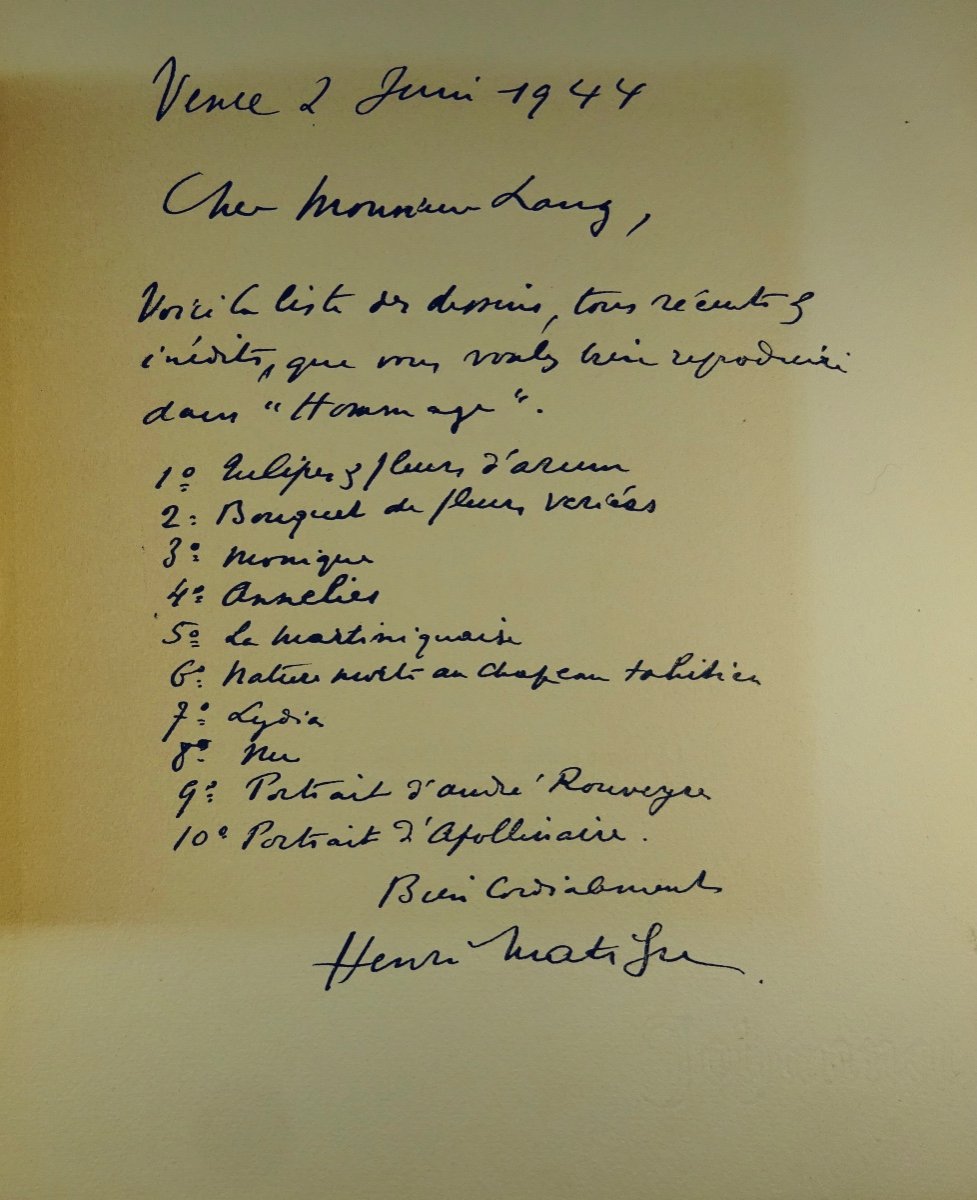 Vence 2 Juin 1944
Cher Monsieur Lang,
Voici la liste des dessins, tous récents &
inédits, que vous voulez bien reproduire
dans "Hommage".
1º Tulipes & fleurs d'arum
2º Bouquet de fleurs variées
3º Monique
4º Annelies
5º La Martiniquaise
6º Nature morte au chapeau tahitien
7º Lydia
8º Nu
9º Portrait d'André Rouveyre
10º Portrait d'Apollinaire.
Bien Cordialement
Henri Matisse.